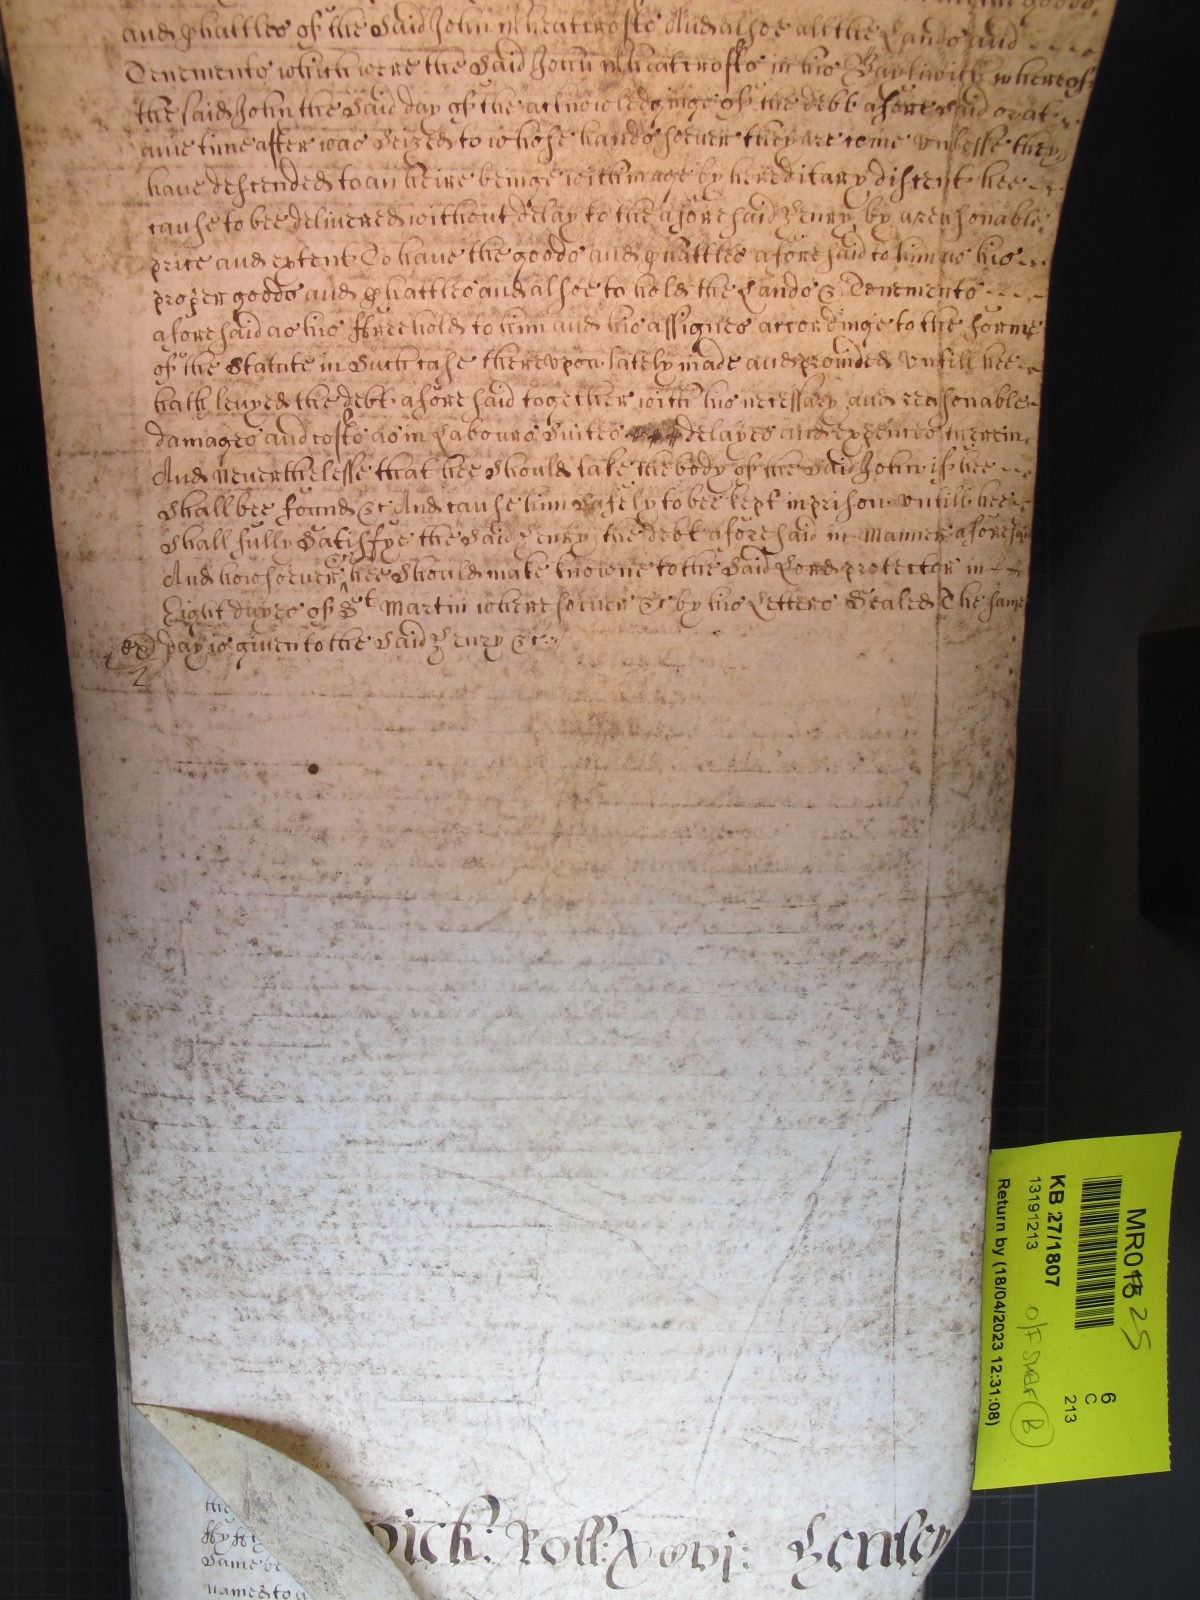 goods
and Chattles of the Said John Wheatcrofte And alsoe all the Lands and
Tenements which were the Said John Wheatcrofts in his Bayliwick whereof
the said John the Said day of the acknowledginge of the debt afore Said or att
anie time after was Seized to whose hands soever they are come Unlesse they
have descended to an heire beinge within age by hereditary discent hee
cause to bee delivered without delay to the aforesaid Henry by a reasonable
price and extent To have the goods and Chattles aforesaid to him as his
proper goods and Chattles and alsoe to hold the Lands & Tenements
aforesaid as his ffreehold to him and his assignes accordinge to the forme
of the Statute in Such case thereupon lately made and provided Untill hee
hath levyed the debt aforesaid together with his necessary and reasonable
damages and costs as in Labours Suites delayes and expences therein
And Neverthelesse that hee Should take the body of the Said John if hee
Shall bee found &c And cause him Safely to bee kept in prison untill hee
Shall fully Satisfye the Said Henry the debt aforesaid in Manner aforesaid
And howsoever &c hee Should make knowne to the Said Lord protector in
Eight dayes of St Martin wheresoever &c by his Letters Sealed The same
day is given to the Said Henry &c
ex
2
wick: Roll: Xxvi: Henley
Same
named to
MR018 25
6
C
213
KB 27/1807
13191213
O/F SMEF B
Return by (18/04/2023 12:31:08)